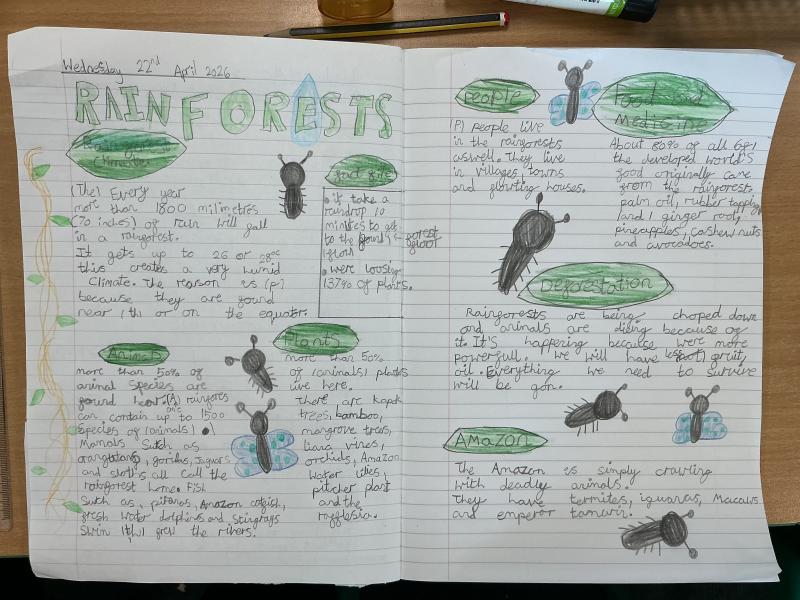 Wednesday 22nd April 2026
RAINFORESTS
Climates
(The) Every year
more than 1800 milimetres
(70 inches) of rain will fall
in a rainforest.
It gets up to 26 or 28°c
this creates a very humid
Climate. The reason is (p)
because they are found
near (th) or on the equator.
fact file
it take a
raindrop 10
minutes to get
to the forest
floor
were loosing
137% of plants.
Animals
more than 50% of
animal species are
found here. (A) rainfores
can contain up to 1500
species of (animals)
Mamals Such as
orangutans, gorilas, Jaguars
and sloths all call the
rainforest home. Fish
Such as, piranas, Amazon catfish,
fresh water dolphins and Stingrays
Swim (th) the rivers.
Plants
more than 50%
of (animals) plants
live here.
There are kapok
trees, bamboo,
mangrove trees,
liana vines,
orchids, Amazon
Water lilies,
pitcher plant
and the
rafflesia.
People
(P) people live
in the rainforests
aswell. They live
in villages, towns
and floating houses.
Food and
Medicine
About 80% of all
the developed world's
food originally came
from the rainforests
palm oil, rubber tapping
and ginger root,
pineapples, cashew nuts
and avocadoes.
Deforestation
Rainforests are being choped down
and animals are dieing because of
it. It's happening because were more
powerfull. We will have less fruit,
oil. Everything we need to survive
will be gon.
Amazon
The Amazon is simply crawling
with deadly animals.
They have termites, iguanas, Macaws
and emperor tamarin.